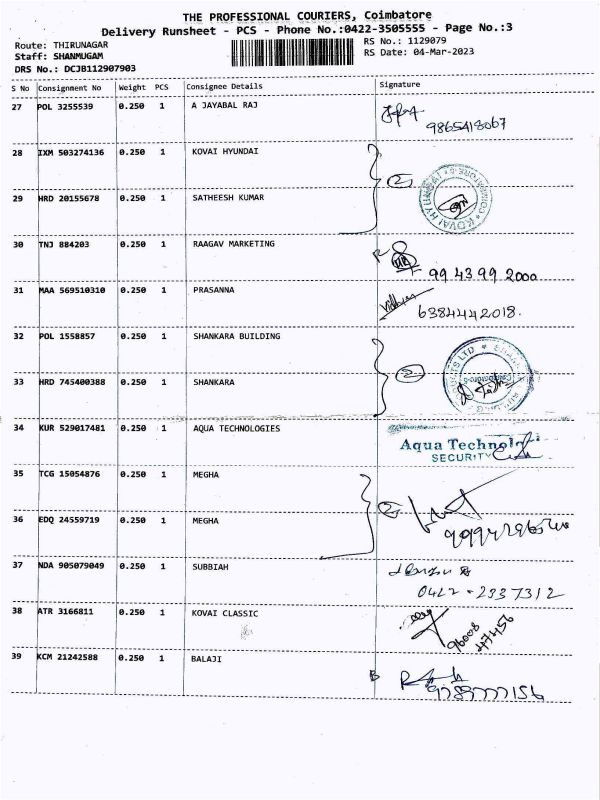 THE PROFESSIONAL COURIERS, Coimbatore
Delivery Runsheet - PCS - Phone No.:0422-3505555 - Page No.:3
Route: THIRUNAGAR
RS No.: 1129079
Staff: SHANMUGAM
RS Date: 04-Mar-2023
DRS No.: DCJB112907903
S No Consignment No Weight PCS Consignee Details Signature
27 POL 3255539 0.250 1 A JAYABAL RAJ
9865418067
28 IXM 503274136 0.250 1 KOVAI HYUNDAI
29 HRD 20155678 0.250 1 SATHEESH KUMAR
KOVAI HYUNDAI * COIMBATORE-6
30 TNJ 884203 0.250 1 RAAGAV MARKETING
99 43 99 2000
31 MAA 569510310 0.250 1 PRASANNA
6384442018.
32 POL 1558857 0.250 1 SHANKARA BUILDING
33 HRD 745400388 0.250 1 SHANKARA
34 KUR 529017481 0.250 1 AQUA TECHNOLOGIES
Aqua Technologi
SECURITY
35 TCG 15054876 0.250 1 MEGHA
36 EDQ 24559719 0.250 1 MEGHA
37 NDA 905079049 0.250 1 SUBBIAH
0422 - 2337312
38 ATR 3166811 0.250 1 KOVAI CLASSIC
96008
47456
39 KCM 21242588 0.250 1 BALAJI
9789777156